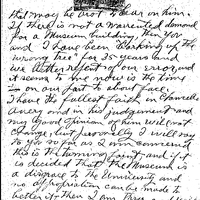 that may be brot to bear on him.
If there is not a warrented demand
for a Museum building, then You
and I have been "barking up the
wrong tree" for 35 years and
we better repent of our error, and
it seems to me now is the time
on our part to about face.
I have the fullest faith in Chancellor
Avery and in his judgement and
my good opinion of him will not
change, but personally I will say
to You so far as I am concerned
this is the turning point, and if it
is decided that the Museum is
a disgrace to the University and
no appropriation can be made to
better it, then I am